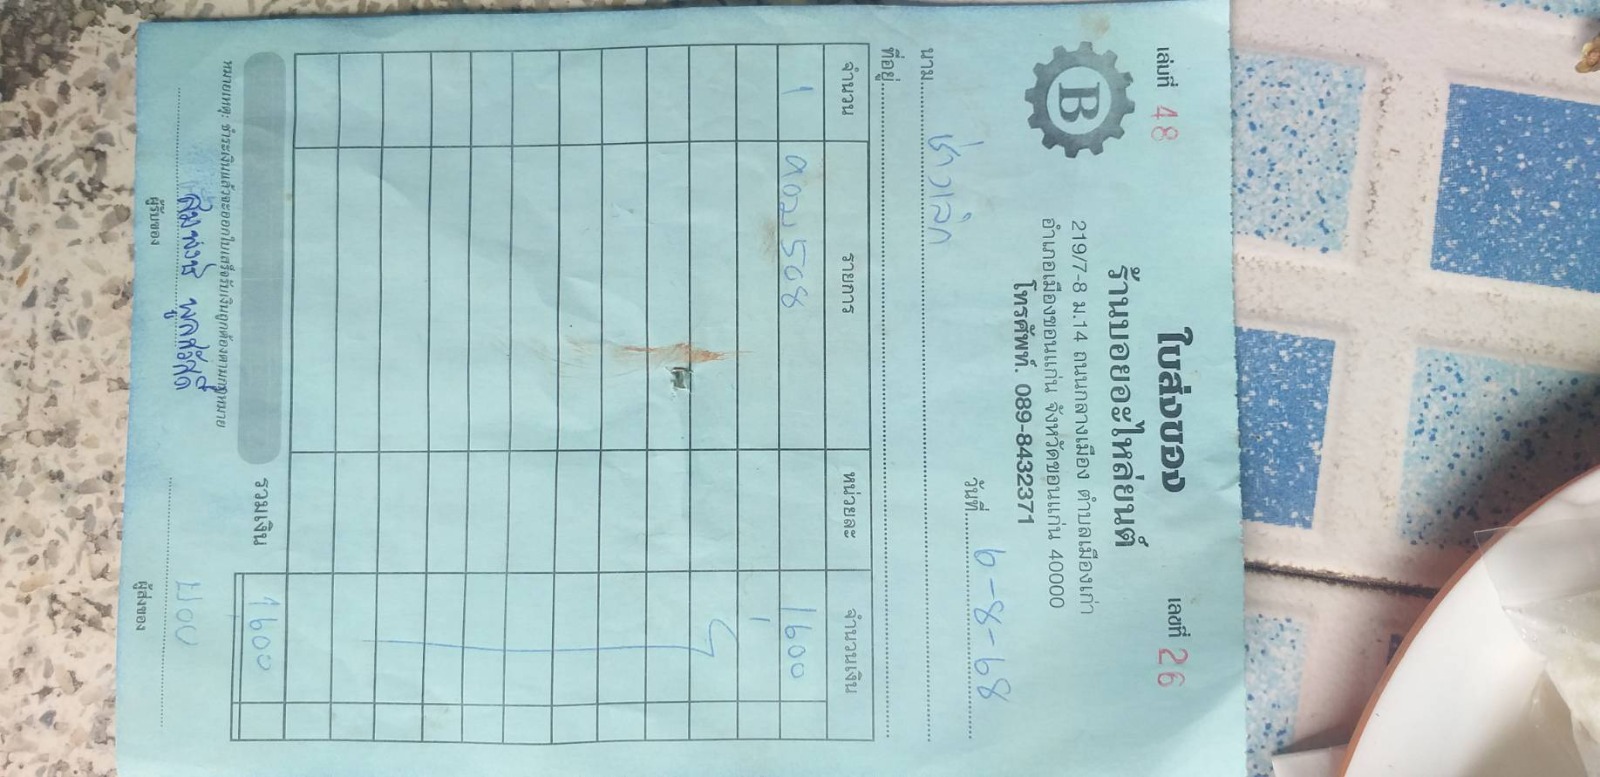 เล่มที่ 48
ใบส่งของ
เลขที่ 26
B
ร้านบอยอะไหล่ยนต์
219/7-8 ม.14 ถนนกลางเมือง ตำบลเมืองเก่า
อำเภอเมืองขอนแก่น จังหวัดขอนแก่น 40000
โทรศัพท์. 089-8432371
วันที่ 6-8-68
นาม ช่างเล็ก
ที่อยู่
จำนวน รายการ หน่วยละ จำนวนเงิน
1 5508 1600
รวมเงิน 1600
หมายเหตุ: ชำระเงินแล้วจะออกใบเสร็จรับเงินถูกต้องตามกฎหมาย
ผู้รับของ
ผู้ส่งของ